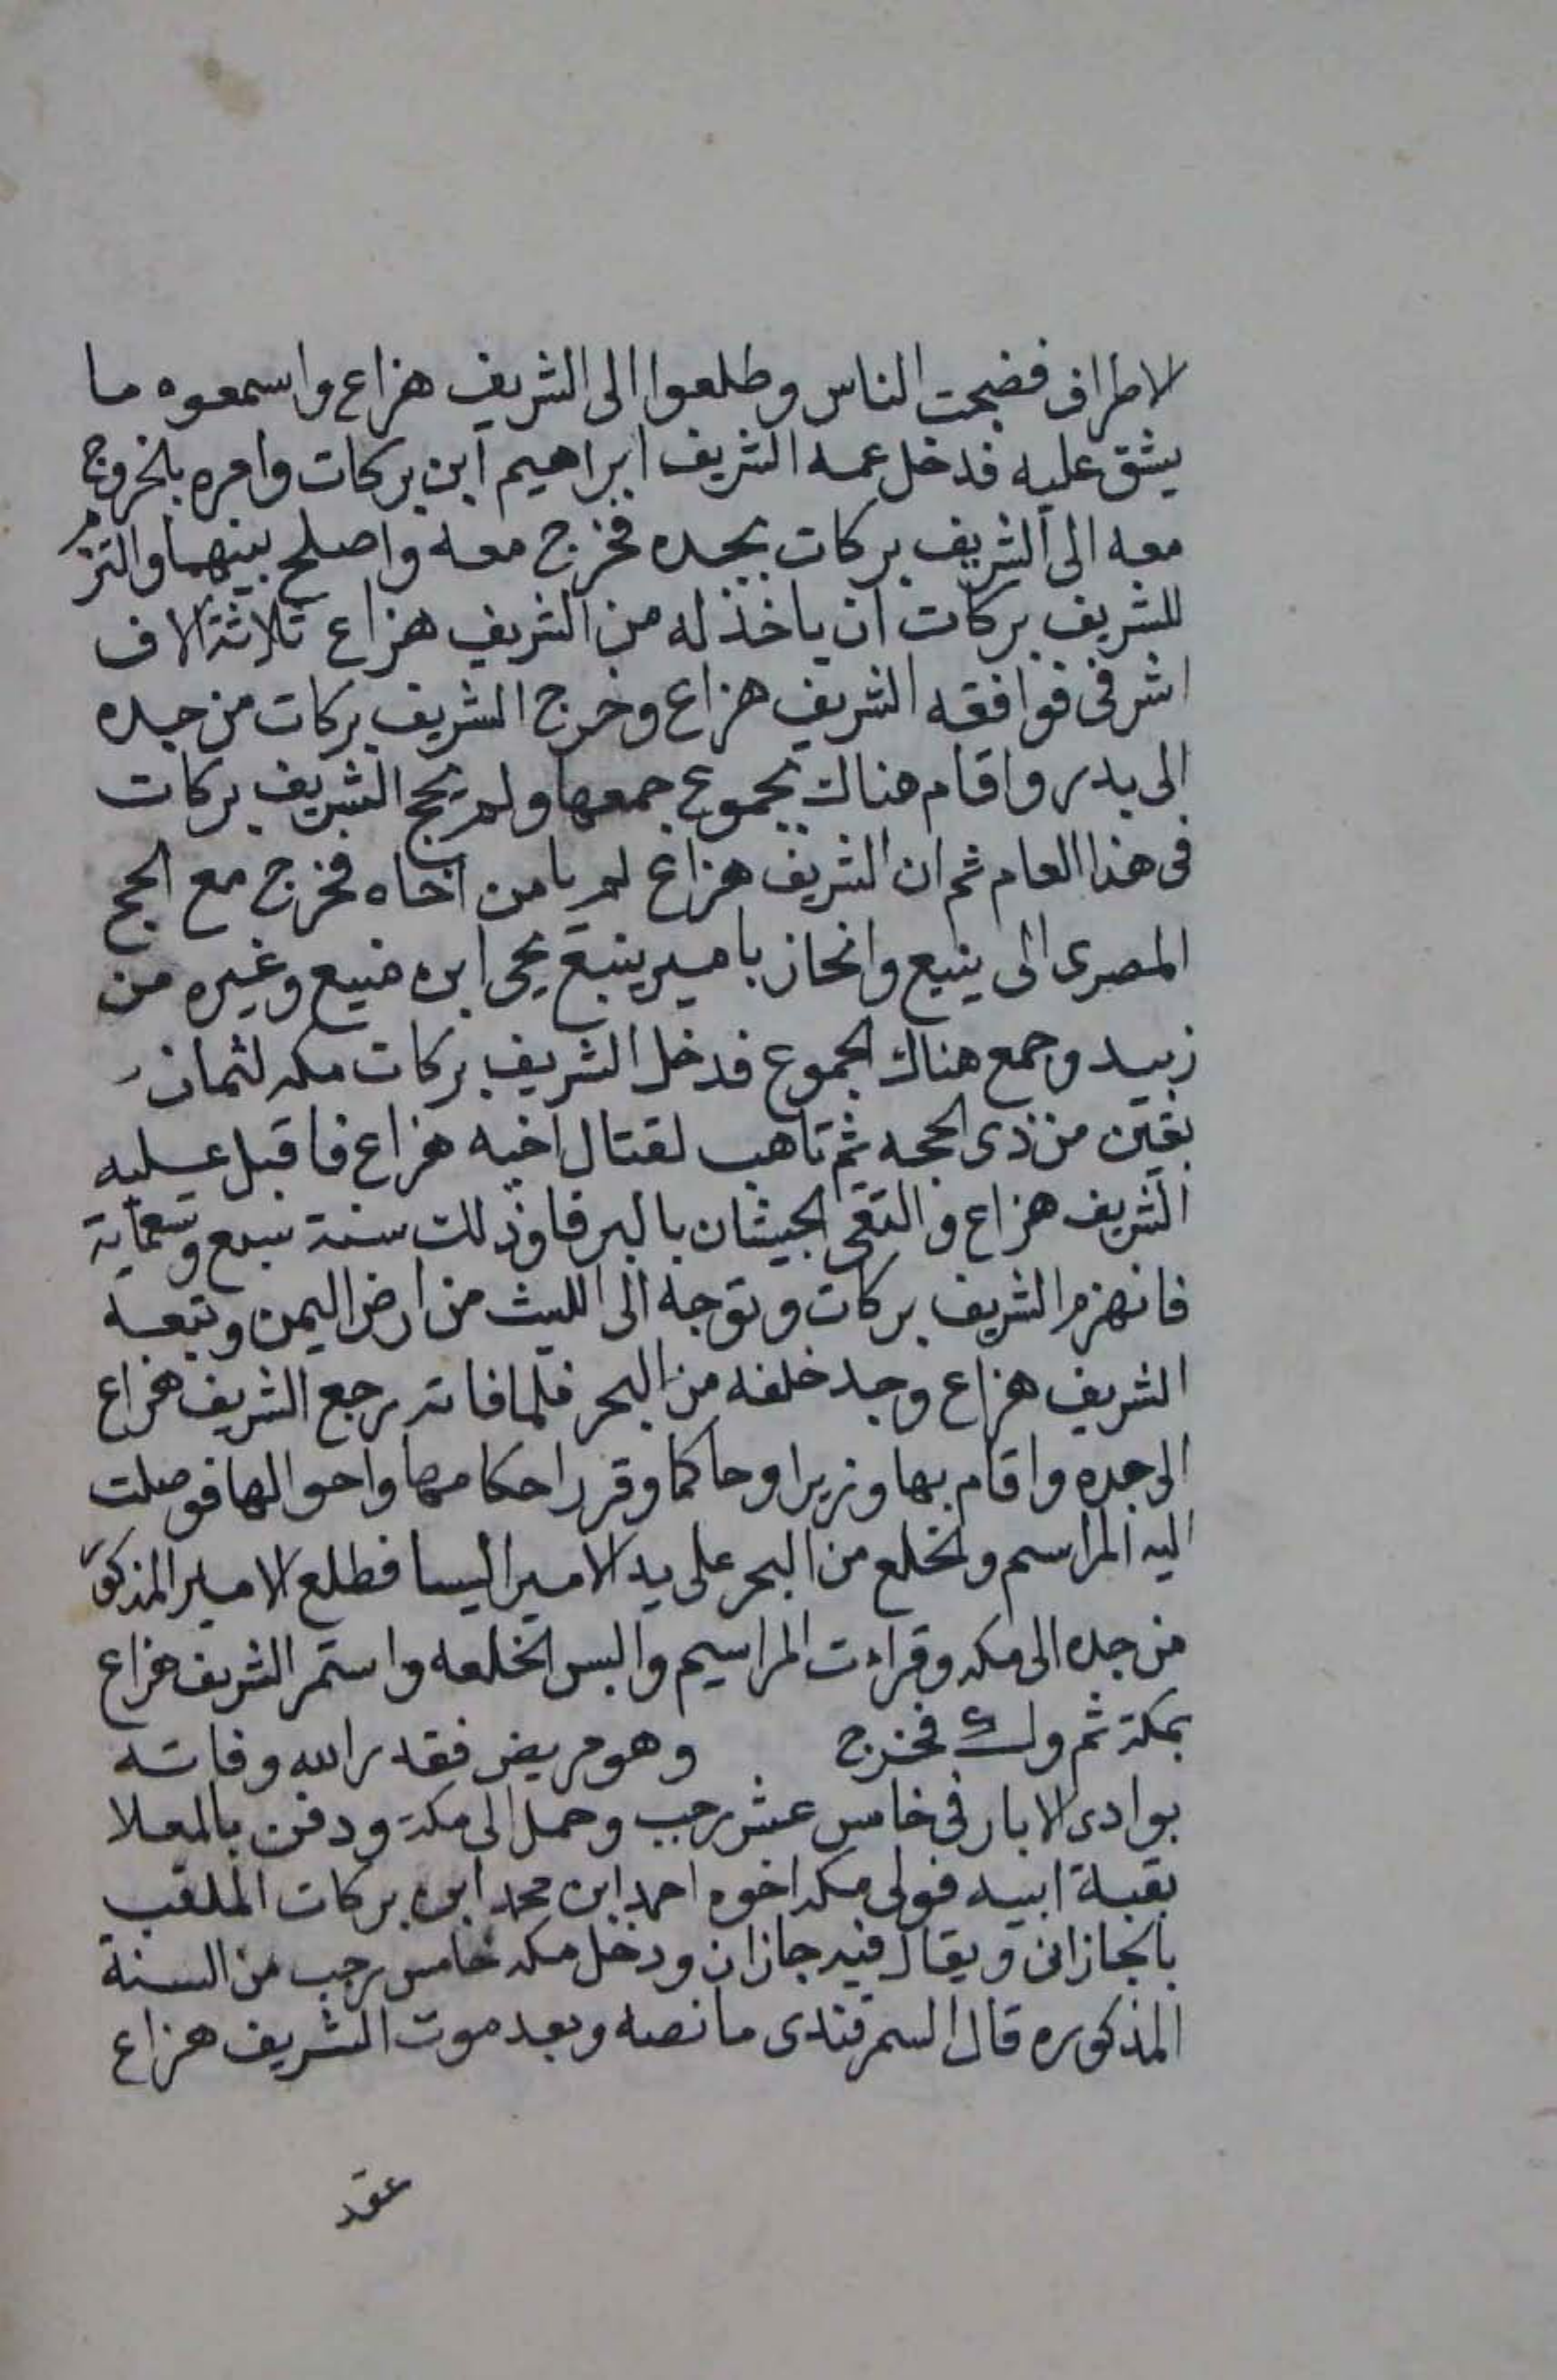 لاطراف فضجت الناس وطلعوا الى الشريف هزاع واسمعوه ما
يشق عليه فدخل عمه الشريف ابراهيم ابن بركات وامره بالخروج
معه الى الشريف بركات بجده فخرج معه واصلح بينهما والتزم
للشريف بركات ان ياخذ له من الشريف هزاع ثلاثة الاف
اشرفى فوافقه الشريف هزاع وخرج الشريف بركات من جده
الى بدر واقام هناك بجموع جمعها ولم يحج الشريف بركات
فى هذا العام ثم ان الشريف هزاع لم يامن اخاه فخرج مع الحج
المصرى الى ينبع وانحاز بامير ينبع يحى ابن سبيع وغيره من
زبيد وجمع هناك الجموع فدخل الشريف بركات مكه لثمان
بقين من ذى الحجه ثم تاهب لقتال اخيه هزاع فاقبل عليه
الشريف هزاع والتقى الجيشان بالبرقا وذلك سنة سبع وتسعماية
فانهزم الشريف بركات وتوجه الى الليث من ارض اليمن وتبعه
الشريف هزاع وجد خلفه من البحر فلما فاته رجع الشريف هزاع
الى جده واقام بها وزيرا وحاكما وقرر احكامها واحوالها فوصلت
اليه المراسم والخلع من البحر على يد الامير اليسا فطلع الامير المذكور
من جده الى مكه وقراءت المراسيم والبس الخلعه واستمر الشريف هزاع
بمكة ثم فخرج وهو مريض فقدر الله وفاته
بوادى الابار فى خامس عشر رجب وحمل الى مكة ودفن بالمعلا
بقبة ابيه فولى مكه اخوه احمد ابن محمد ابن بركات الملقب
بالجازانى ويقال فيه جازان ودخل مكه خامس رجب من السنة
المذكوره قال السمرقندى ما نصه وبعد موت الشريف هزاع
عقد